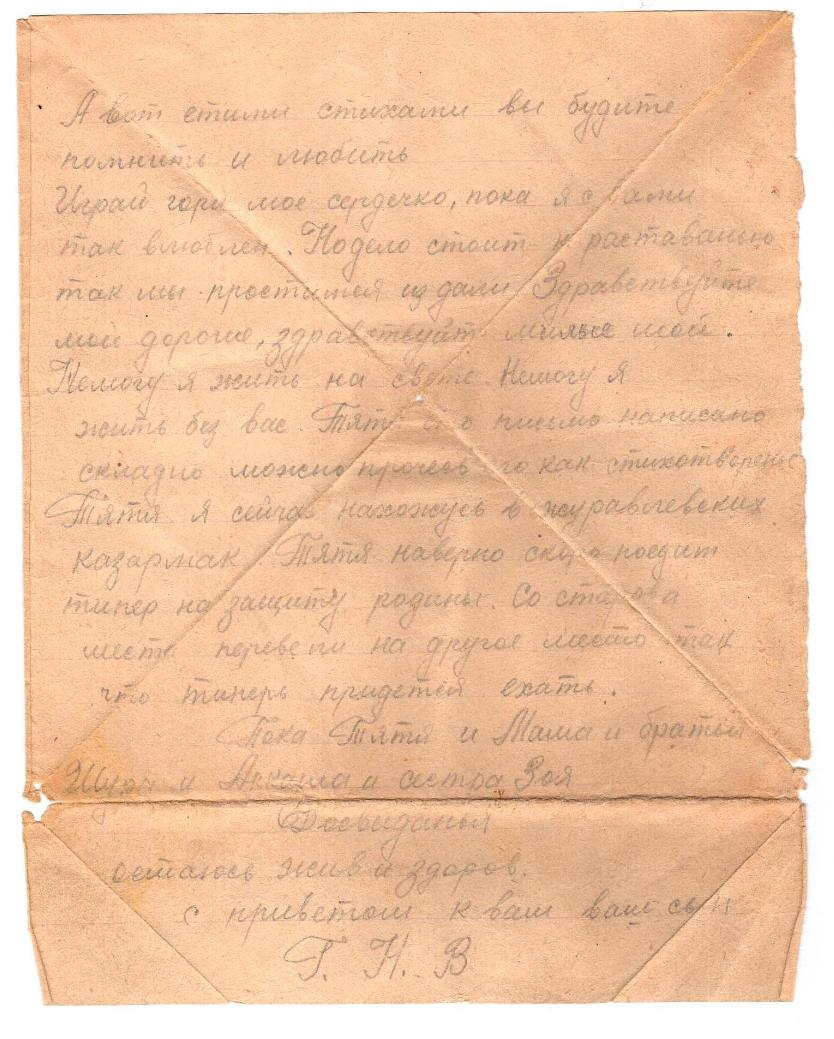 А вот етими стихами вы будите
помнить и любить
Играй гори мое сердечко, пока я с вами
так влюблен. Но дело стоит к раставанью
так мы простимся из дали Здравствуйте
мои дорогие, здравствуйт милые мои.
Немогу я жить на свете. Немогу я
жить без вас. Тятя это письмо написано
складно можно прочесь его как стихотворенье
Тятя я сейчас нахожусь в журавлевских
казармах. Тятя наверно скоро поедит
типер на защиту родины. Со старова
места перевели на другое место так
что типерь придется ехать.
Пока Тятя и Мама и братья
Шура и Аркаша и систра Зоя
Досвиданья
остаюсь жив и здоров.
с приветом к вам ваш сын
Г. Н. В